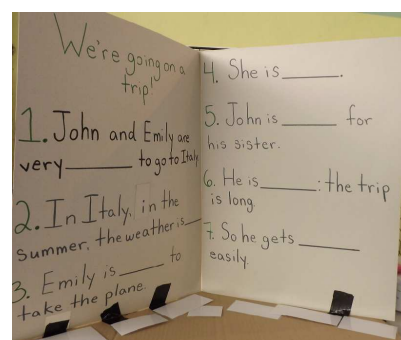 We're going on a
trip!
1. John and Emily are
very_______ to go to Italy
2. In Italy, in the
summer, the weather is___
3. Emily is______ to
take the plane.
4. She is_______.
5. John is_______ for
his sister.
6. He is_______: the trip
is long
7. So he gets_______
easily.